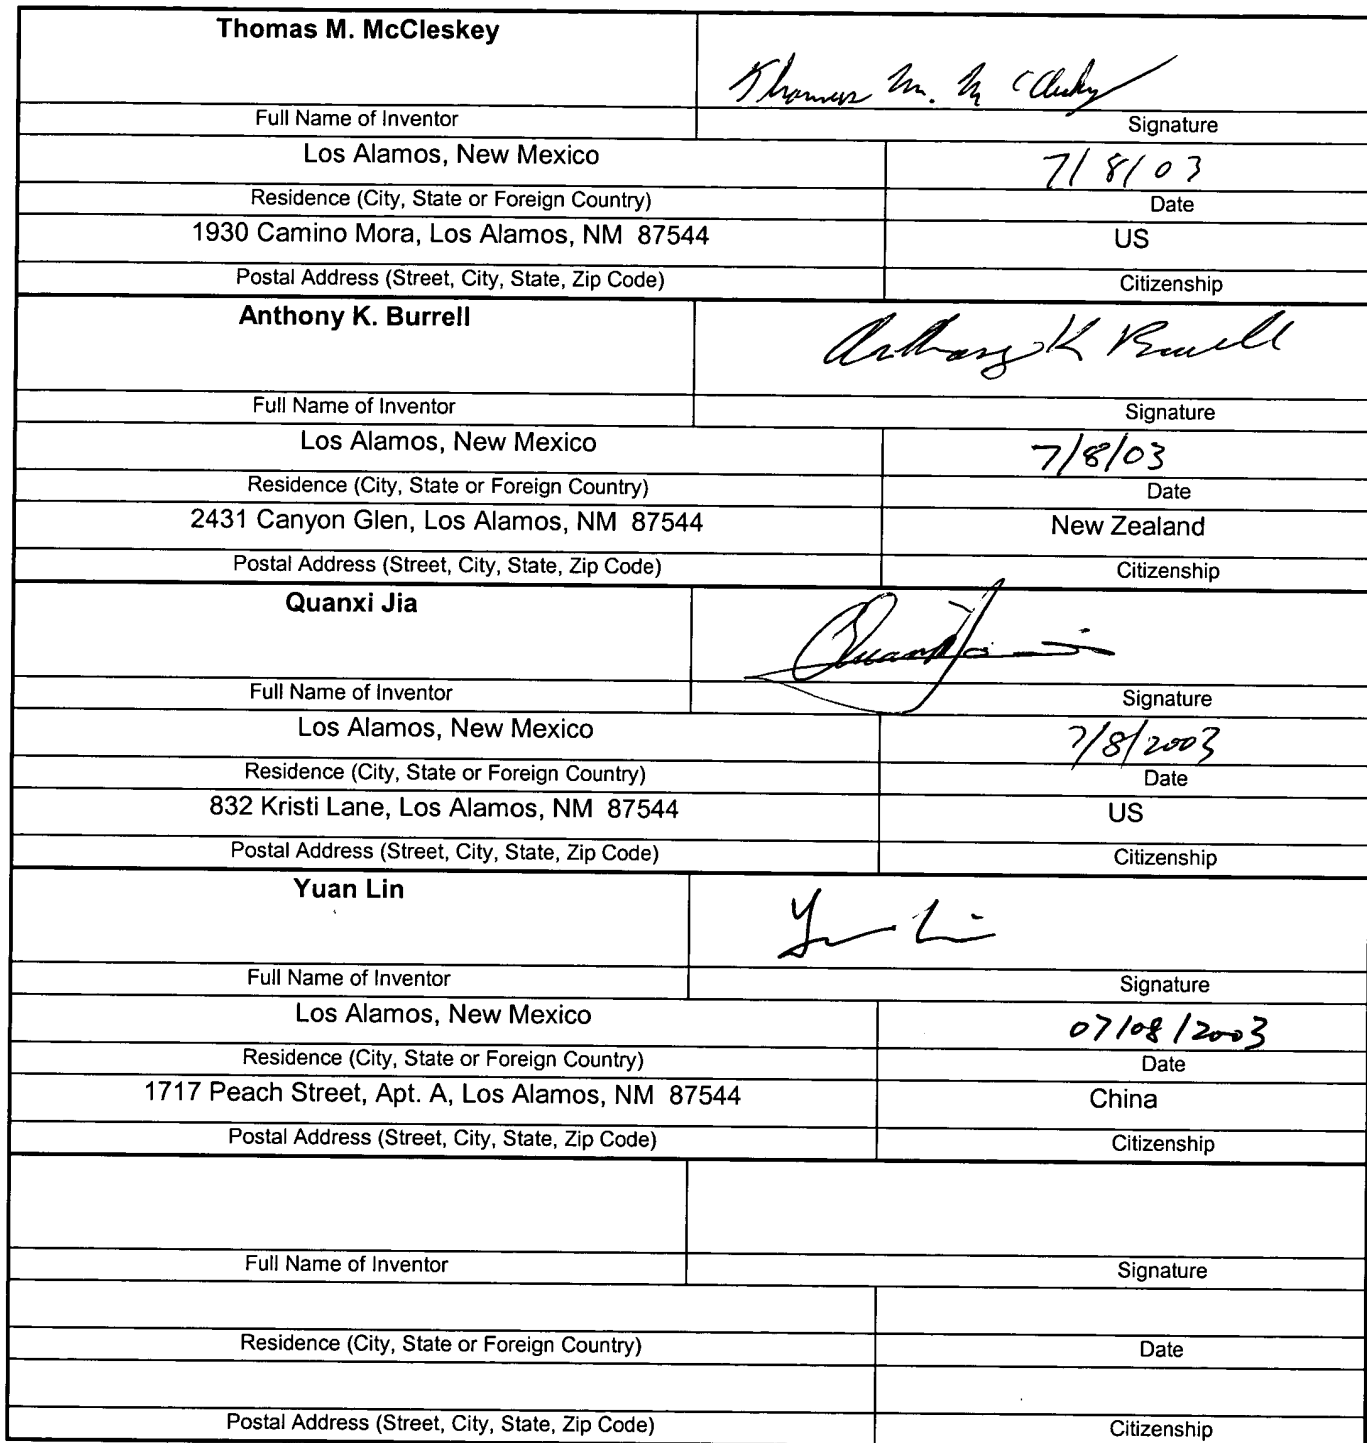 Thomas M. McCleskey
Thomas M. McCleskey
Full Name of Inventor Signature
Los Alamos, New Mexico 7/8/03
Residence (City, State or Foreign Country) Date
1930 Camino Mora, Los Alamos, NM 87544 US
Postal Address (Street, City, State, Zip Code) Citizenship
Anthony K. Burrell Anthony K Burrell
Full Name of Inventor Signature
Los Alamos, New Mexico 7/8/03
Residence (City, State or Foreign Country) Date
2431 Canyon Glen, Los Alamos, NM 87544 New Zealand
Postal Address (Street, City, State, Zip Code) Citizenship
Quanxi Jia Quanxi Jia
Full Name of Inventor Signature
Los Alamos, New Mexico 7/8/2003
Residence (City, State or Foreign Country) Date
832 Kristi Lane, Los Alamos, NM 87544 US
Postal Address (Street, City, State, Zip Code) Citizenship
Yuan Lin Yuan Lin
Full Name of Inventor Signature
Los Alamos, New Mexico 07/08/2003
Residence (City, State or Foreign Country) Date
1717 Peach Street, Apt. A, Los Alamos, NM 87544 China
Postal Address (Street, City, State, Zip Code) Citizenship
Full Name of Inventor Signature
Residence (City, State or Foreign Country) Date
Postal Address (Street, City, State, Zip Code) Citizenship